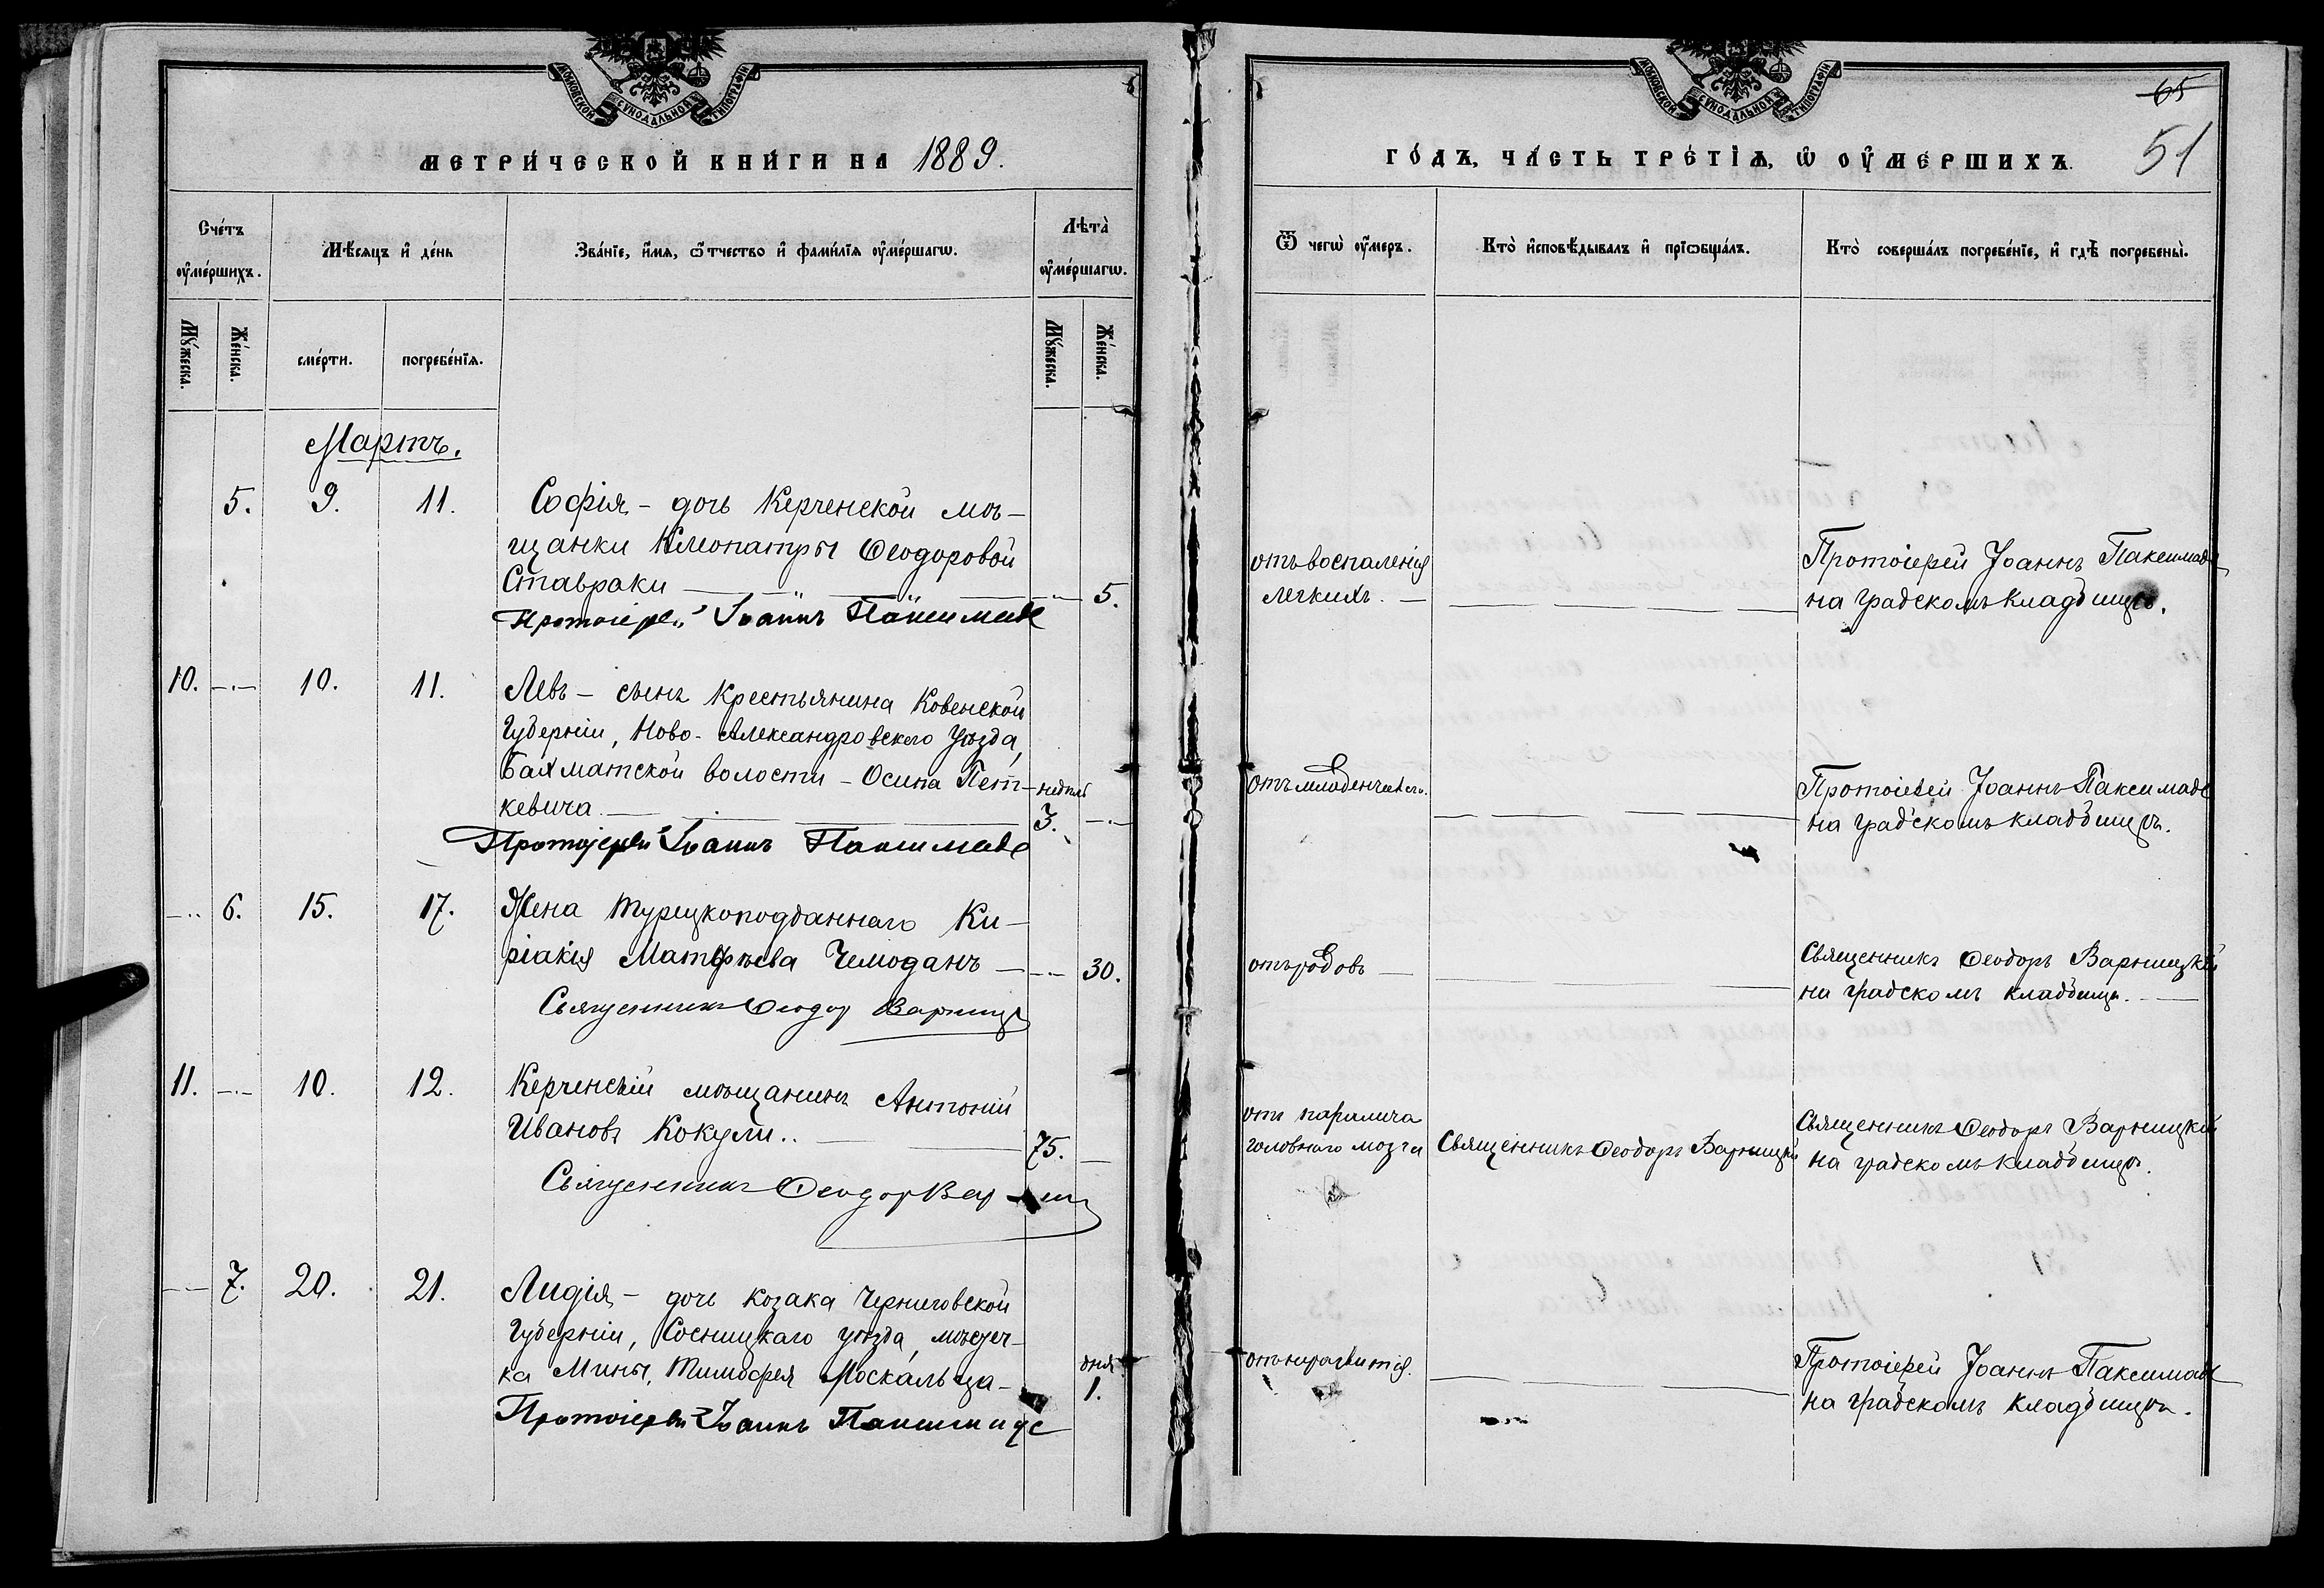 МОСКОВСКОЙ СѴНОДАЛЬНОЙ ТИПОГРАФІИ
МЕТРИ́ЧЕСКОЙ КНИ́ГИ НА 1889.
Сче́тъ оу҆ме́ршихъ.
Мѣ́сяцъ и҆ де́нь
Зва́нїе, и҆́мя, ѻ҆́тчество и҆ фами́лїя оу҆ме́ршагѡ.
Лѣта̀ оу҆ме́ршагѡ.
Мꙋ́жеска.
Же́нска.
сме́рти.
погребе́нїя.
Мꙋ́жеска.
Же́нска.
Мартъ.
5. 9. 11. Софія – дочь Керченской мѣ-
щанки Клеопатры Ѳеодоровой
Ставраки 5.
Протоіерей Іоаннъ Паксимаде
10. 10. 11. Левъ – сынъ крестьянина Ковенской
Губерніи, Ново-Александровскаго Уѣзда,
Бахматской волости – Осипа Пет-
кевича недѣль 3.
Протоіерей Іоаннъ Паксимаде
6. 15. 17. Жена турецкоподданнаго Ки-
ріакія Матфѣева Чемоданъ 30.
Священникъ Ѳеодоръ Варниц
11. 10. 12. Керченскій мѣщанинъ Антоній
Ивановъ Кокули.. 75.
Священникъ Ѳеодоръ
7. 20. 21. Лидія – дочь козака Черниговской
Губерніи, Сосницкаго уѣзда, мѣстеч-
ка Мины, Тимофея Москальца дня 1.
Протоіерей Іоаннъ Паксимаде
МОСКОВСКОЙ СѴНОДАЛЬНОЙ ТИПОГРАФІИ
65
51
ГО́ДЪ, ЧА́СТЬ ТРЕ́ТІѦ, Ѡ҆ ОУ҆МЕ́РШИХЪ.
Ѿ чегѡ̀ оу҆́меръ.
Кто̀ и҆сповѣ́дывалъ и҆ прїѡбща́лъ.
Кто̀ соверша́лъ погребе́нїе, и҆ гдѣ̀ погребены̀.
отъ воспаленія
легкихъ.
Протоіерей Іоаннъ Паксимаде
на градскомъ кладбищѣ.
отъ младенческаго.
Протоіерей Іоаннъ Паксимаде
на градскомъ кладбищѣ.
отъ родовъ
Священникъ Ѳеодоръ Варницкій
на градскомъ кладбищѣ.
отъ паралича
головнаго мозга
Священникъ Ѳеодоръ Варницкій
Священникъ Ѳеодоръ Варницкій
на градскомъ кладбищѣ.
отъ неразвитія.
Протоіерей Іоаннъ Паксимаде
на градскомъ кладбищѣ.